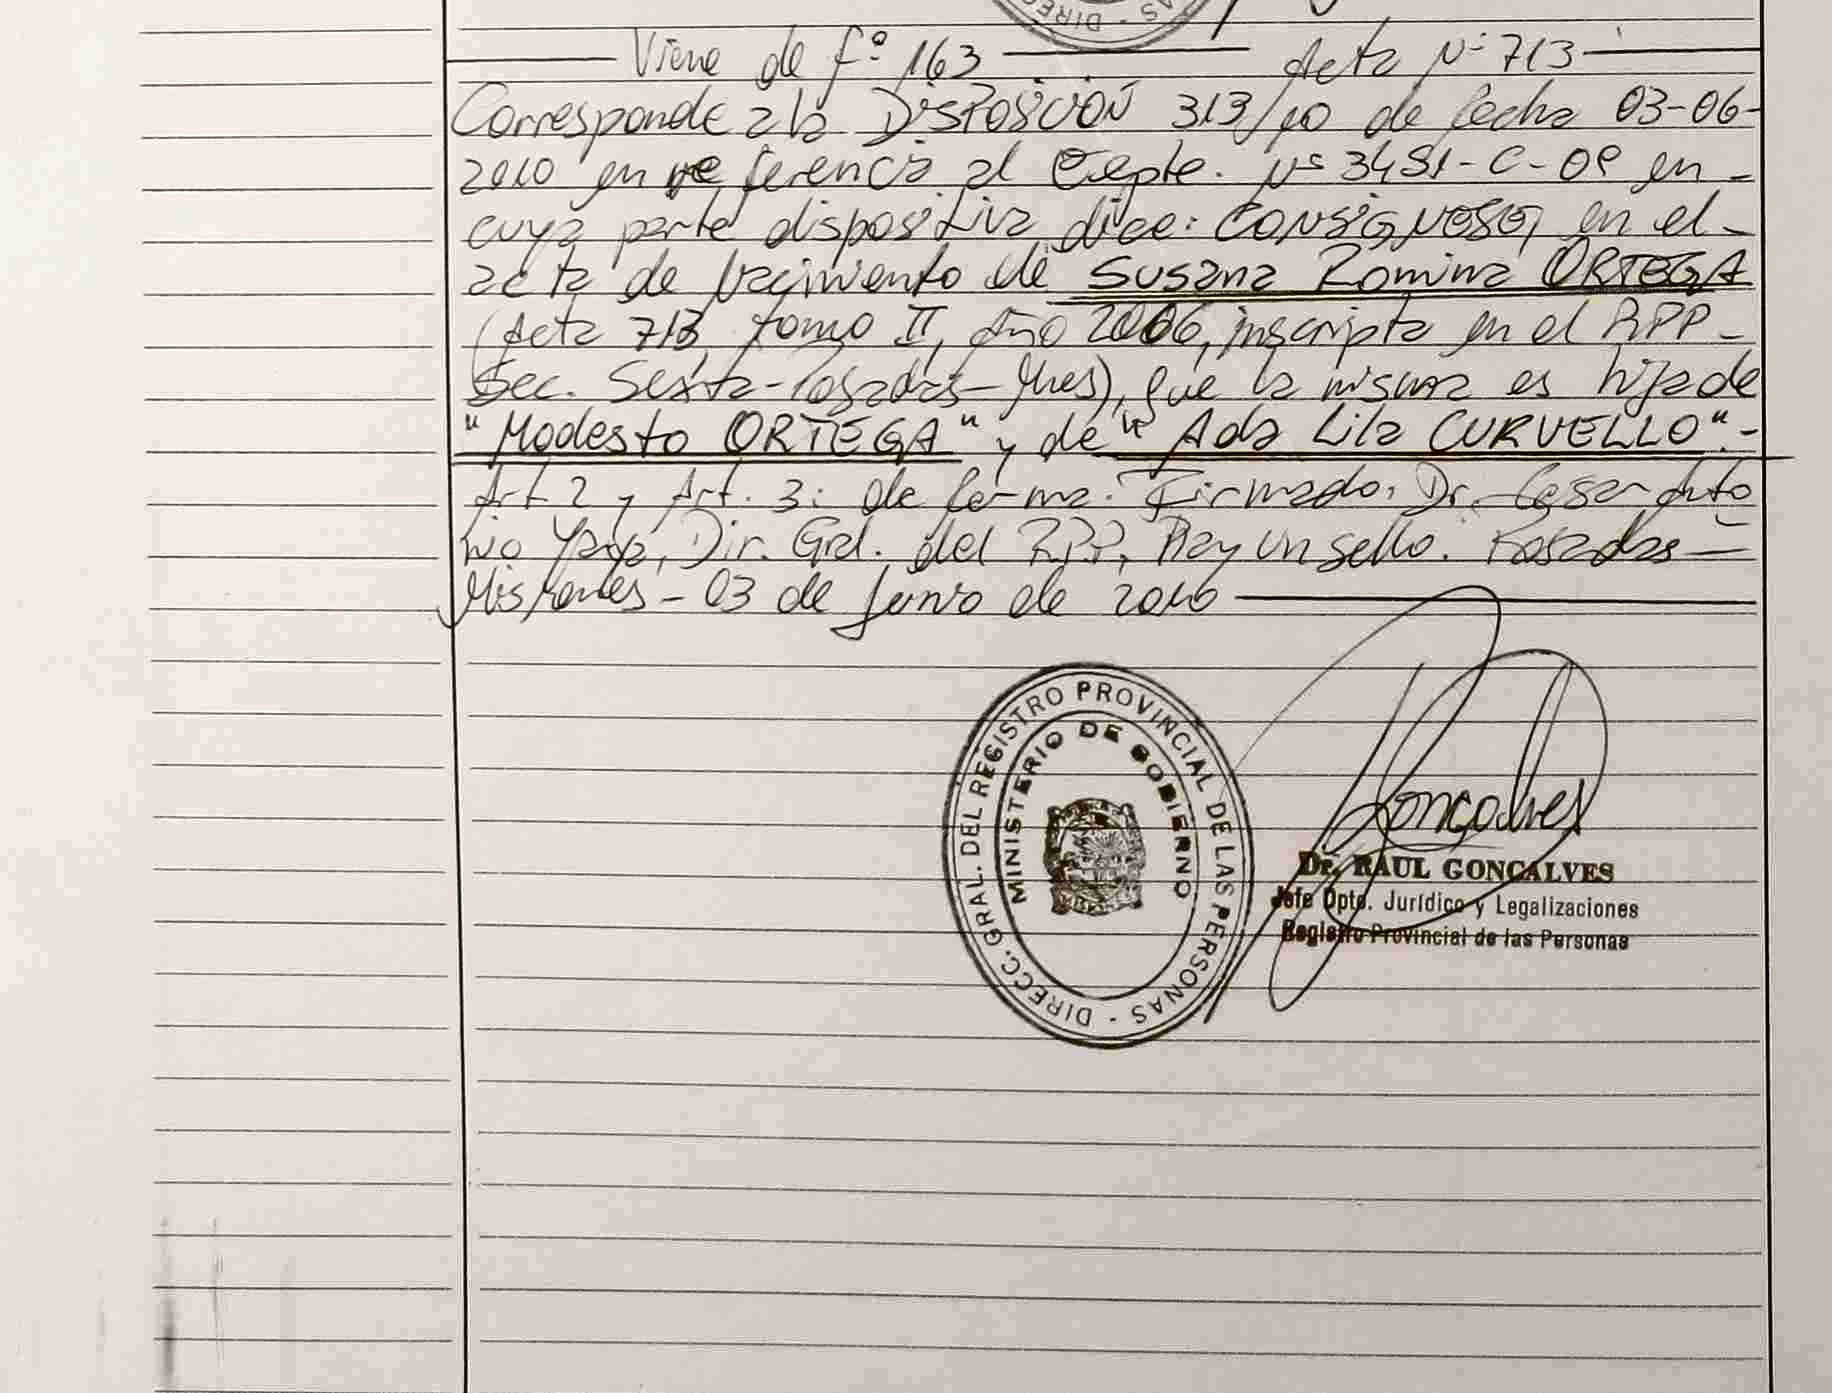 DIRECC. NAS
Viene de fº 163 Acta Nº 713
Corresponde a la DISPOSICIÓN 313/10 de fecha 03-06-
2010 en referencia al Expte. Nº 3481-C-09 en
cuya parte dispositiva dice: CONSIGNESE, en el
acta de Nacimiento de Susana Romina ORTEGA
(Acta 713, tomo II, Año 2006, inscripta en el RPP-
Sec. Sexta-Posadas-Mnes), que la misma es hija de
"Modesto ORTEGA" y de "Ada Lila CURVELLO".-
Art 2 y Art. 3: de forma. Firmado, Dr. Cesar Anto
nio Yaya, Dir. Gral. del RPP, Hay un sello. Posadas-
Misiones-03 de Junio de 2010
DIRECC. GRAL. DEL REGISTRO PROVINCIAL DE LAS PERSONAS -
MINISTERIO DE GOBIERNO
Goncalves
Dr. RAUL GONCALVES
Jefe Dpto. Jurídico y Legalizaciones
Registro Provincial de las Personas